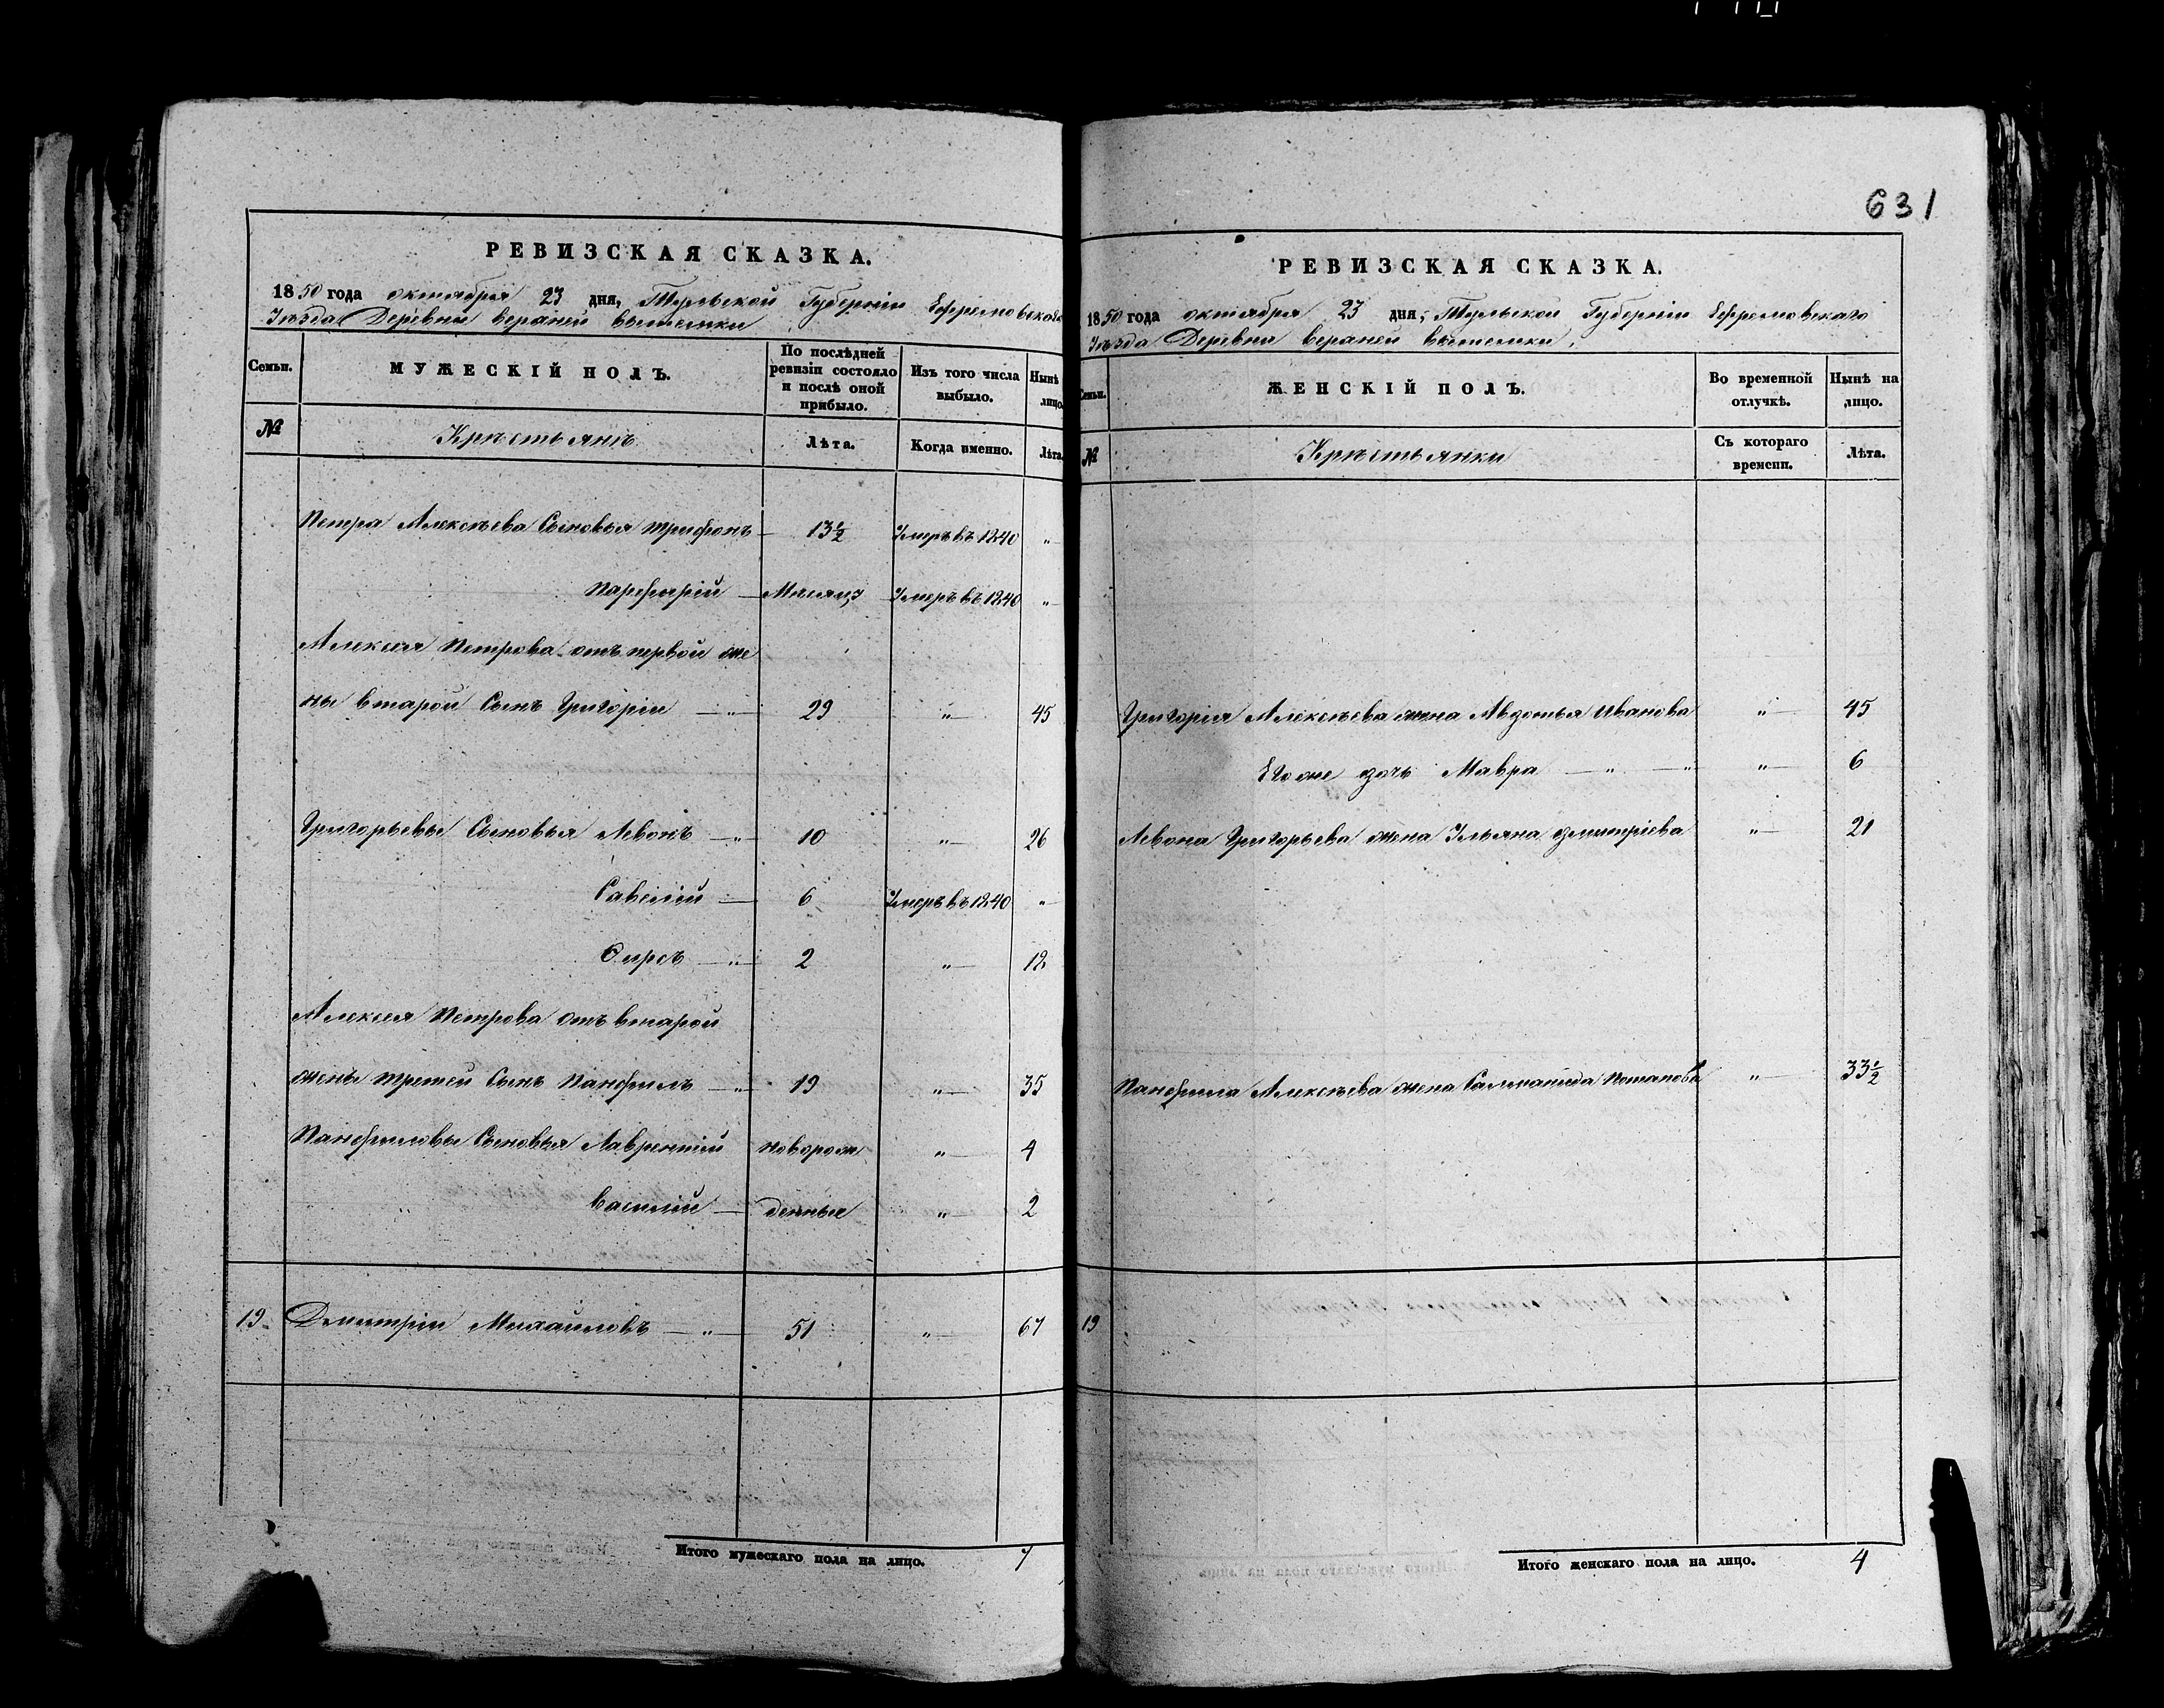 631
РЕВИЗСКАЯ СКАЗКА.
1850 года октября 23 дня, Тульской Губернiи Ефремовскаго
Уѣзда Деревни верхней
Семьи. МУЖЕСКIЙ ПОЛЪ. По послѣдней ревизiи состояло и послѣ оной прибыло. Изъ того числа выбыло. Нынѣ лицо.
№ Крѣстьянъ Лѣта. Когда именно. Лѣта.
Петра Алексѣева Сыновья трифонъ — 13½ Умеръ въ 1840 „
парфирiй — Мѣсяцъ Умеръ въ 1840 „
Алексея Петрова отъ первой же
ны вторый Сынъ Григорiи — „ — 29 „ 45
Григорьевы Сыновья Левонъ — „ 10 „ 26
Савелiй — 6 Умеръ въ 1840 „
Фирсъ — „ 2 „ 18
Алексея Петрова отъ вторай
жены третей Сынъ Панфилъ — „ 19 „ 35
Панфиловы Сыновья Лаврентiй новорож „ 4
василiй — денныя „ 2
19 Дмитрiи Михайловъ — „ — 51 „ 67
Итого мужескаго пола на лицо. 7
РЕВИЗСКАЯ СКАЗКА.
1850 года октября 23 дня, Тульской Губернiи Ефремовскаго
Уѣзда Деревни верхней
Семьи. ЖЕНСКIЙ ПОЛЪ. Во временной отлучкѣ. Нынѣ на лицо.
№ Крѣстьянки Съ котораго времени. Лѣта.
Григорiя Алексѣева жена Авдотья Иванова „ 45
Его же дочь Мавра — „ — „ „ 6
Левона Григорьева жена Ульяна дмитрiева „ 21
Панфила Алексѣева жена Саломанида Потапова „ 33½
19
Итого женскаго пола на лицо. 4